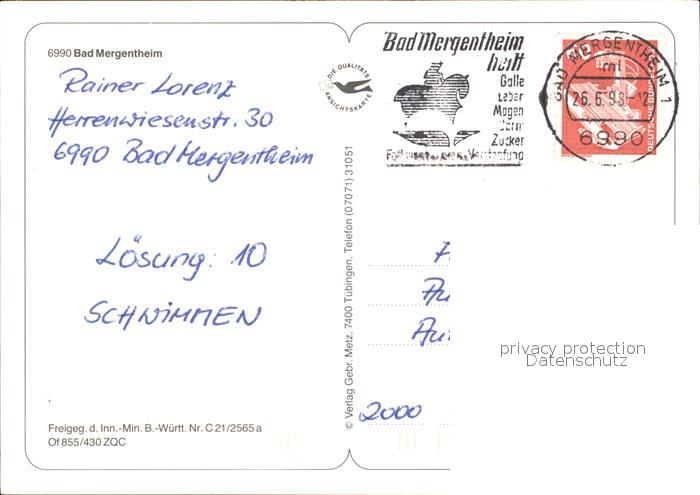 6990 Bad Mergentheim
Rainer Lorenz
Herrenwiesenstr. 30
6990 Bad Mergentheim
Lösung: 10
SCHWIMMEN
Freigeg. d. Inn.-Min. B.-Württ. Nr. C 21/2565 a
Of 855/430 ZQC
DIE QUALITÄTS
ANSICHTSKARTE
© Verlag Gebr. Metz, 7400 Tübingen, Telefon (07071) 31051
Bad Mergentheim
heilt
Galle
Leber
Magen
Darm
Zucker
Verstopfung
BAD MERGENTHEIM 1
6990
2000
privacy protection
Datenschutz